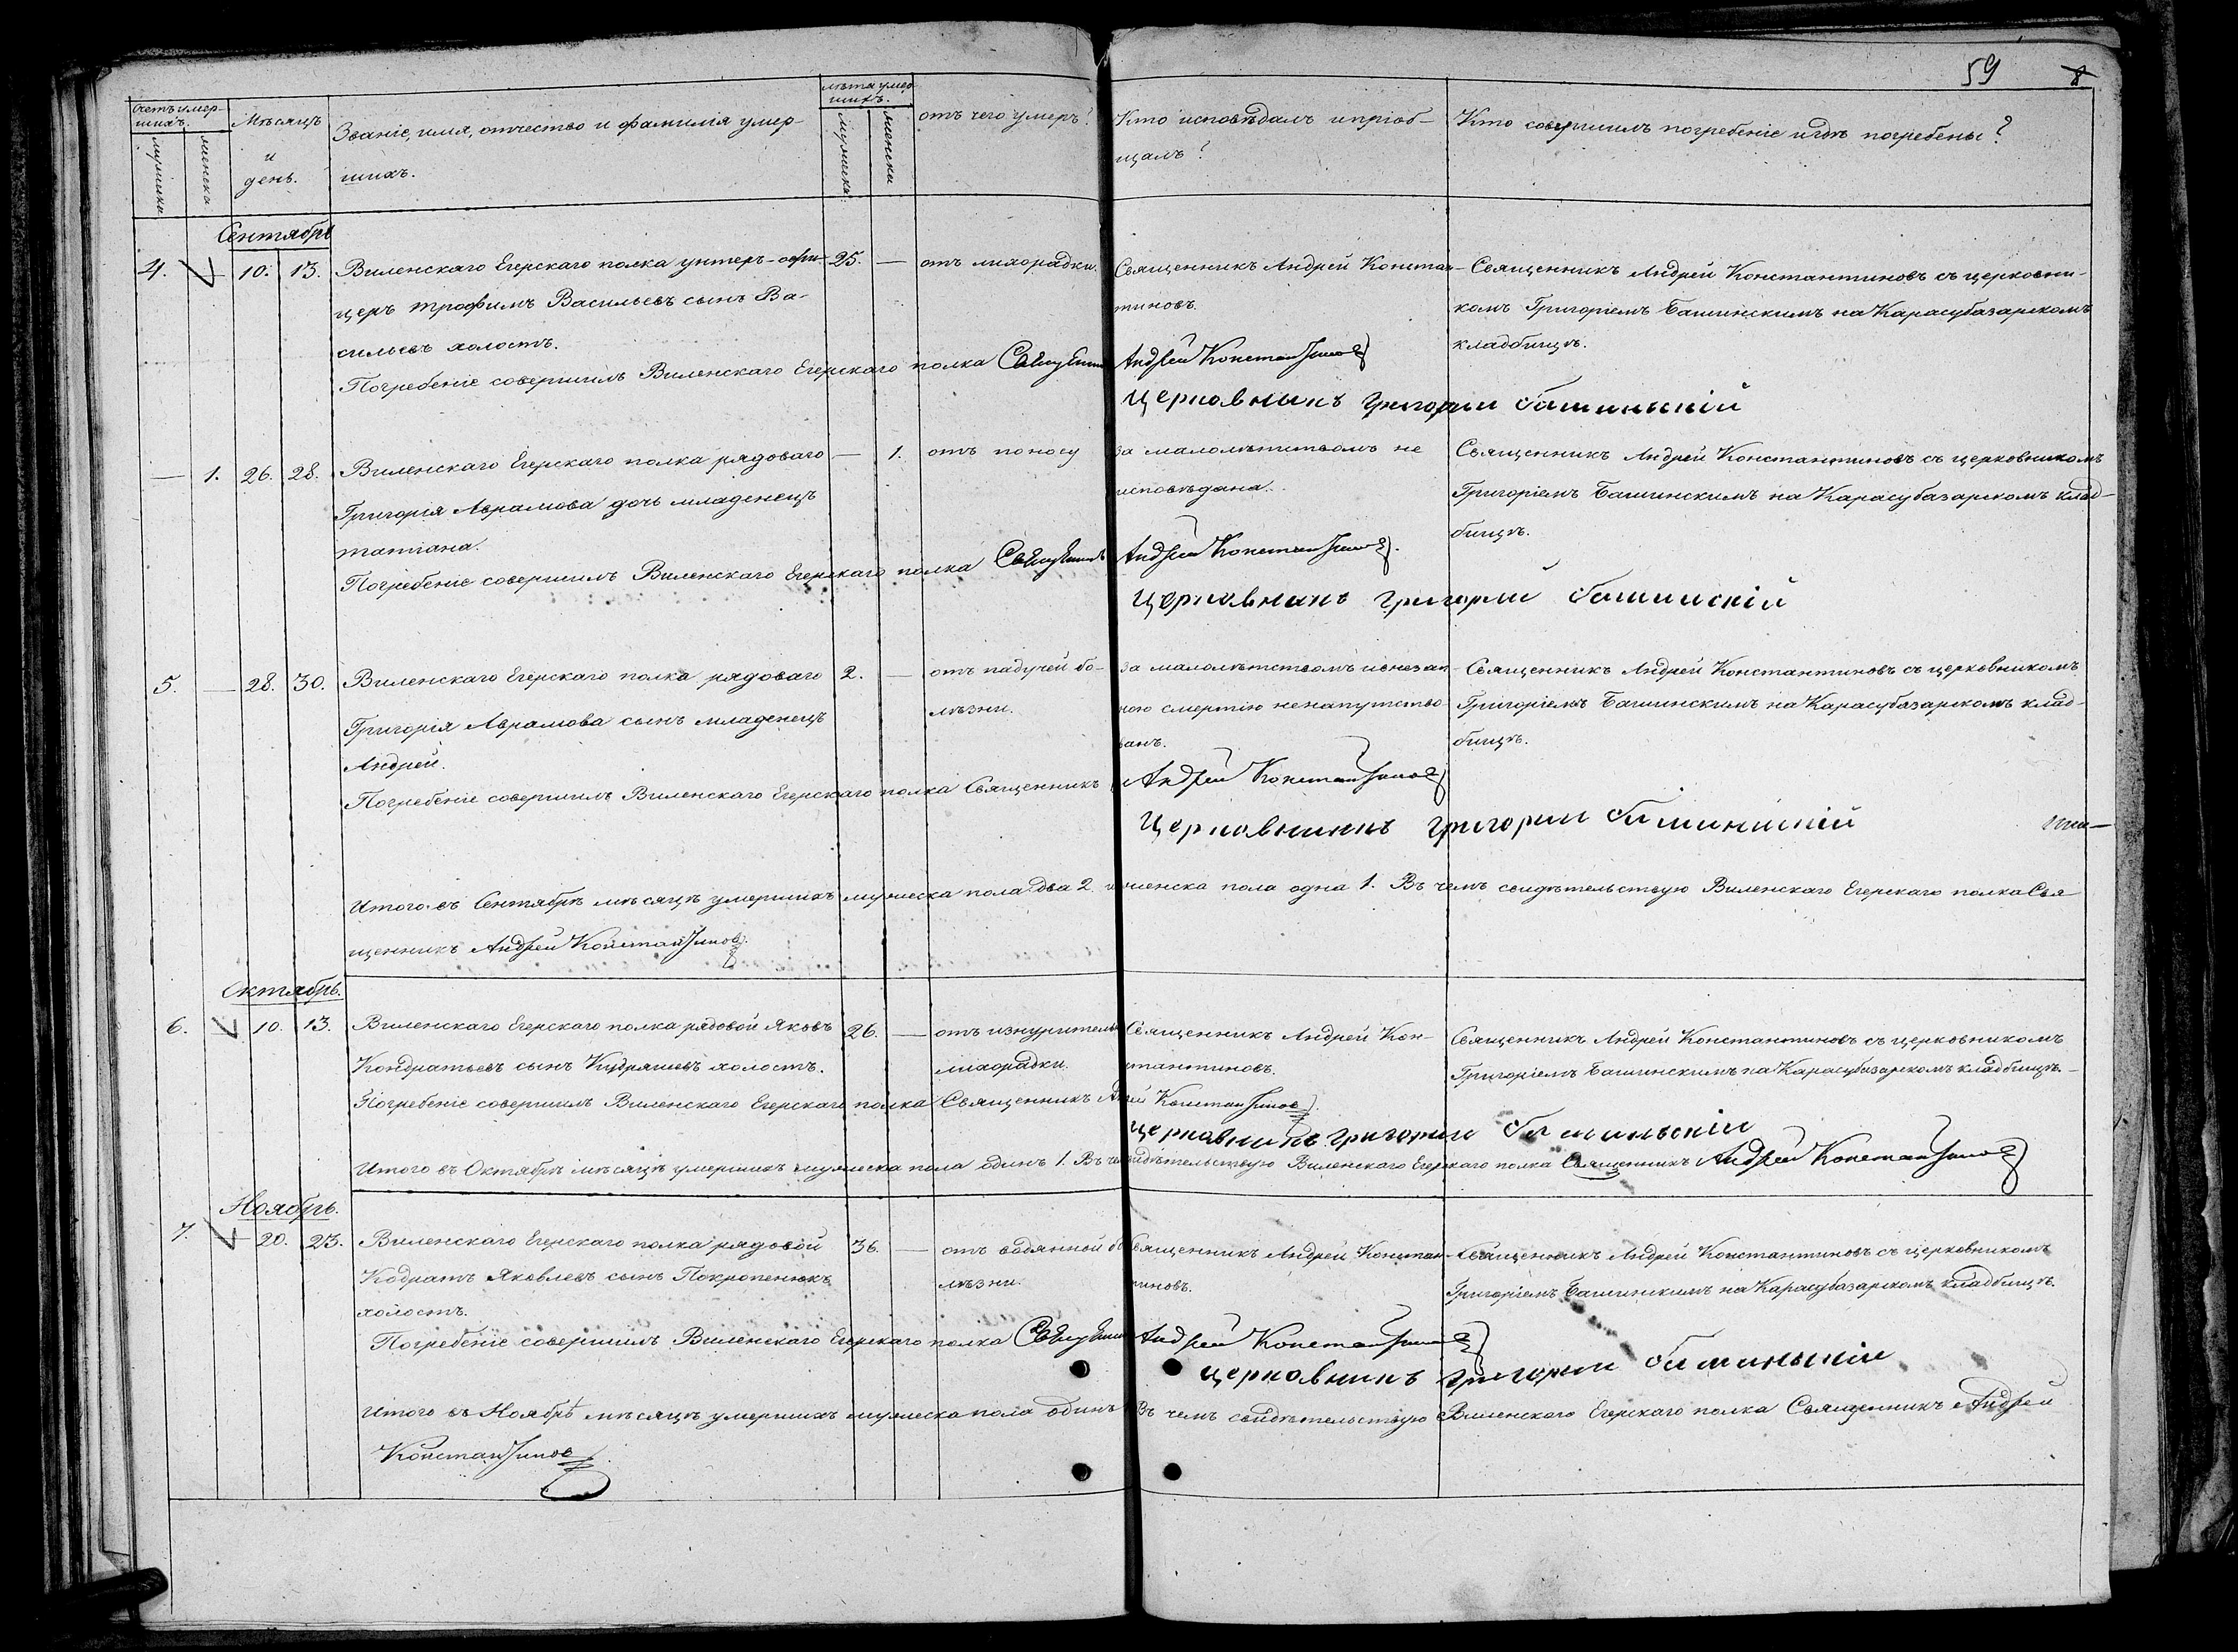 59
8
Счетъ умер-
шихъ.
мужеска
женска
Мѣсяцъ
и
день.
Званіе, имя, отчество и фамилія умер-
шихъ.
лѣта умер
шихъ.
мужеска
женска
отъ чего умеръ?
Кто исповѣдалъ и пріоб-
щалъ?
Кто совершилъ погребеніе и гдѣ погребены?
Сентябрь
4. — 10. 13. Виленскаго Егерскаго полка унтеръ-офи- 25. — отъ лихорадки. Священникъ Андрей Констан- Священникъ Андрей Константиновъ съ церковни-
церъ Трофимъ Васильевъ сынъ Ва- тиновъ. комъ Григоріемъ Башинскимъ на Карасубазарскомъ
сильевъ холостъ. кладбищѣ.
Погребеніе совершилъ Виленскаго Егерскаго полка Священникъ Андрей Константиновъ
Церковникъ Григорий Башинский
— 1. 26. 28. Виленскаго Егерскаго полка рядоваго — 1. отъ поносу за малолѣтствомъ не Священникъ Андрей Константиновъ съ церковникомъ
Григорія Аврамова дочь младенецъ исповѣдана. Григоріемъ Башинскимъ на Карасубазарскомъ клад-
татіана. бищѣ.
Погребеніе совершилъ Виленскаго Егерскаго полка Священникъ Андрей Константиновъ.
Церковникъ Григорий Башинский
5. — 28. 30. Виленскаго Егерскаго полка рядоваго 2. — отъ падучей бо- за малолѣтствомъ и внезап- Священникъ Андрей Константиновъ съ церковникомъ
Григорія Аврамова сынъ младенецъ лѣзни. ною смертію не напутство- Григоріемъ Башинскимъ на Карасубазарскомъ клад-
Андрей. ванъ. бищѣ.
Погребеніе совершилъ Виленскаго Егерскаго полка Священникъ Андрей Константиновъ
Церковникъ Григорий Башинский
Итого въ Сентябрѣ мѣсяцѣ умершихъ мужеска пола два 2. женска пола одна 1. Въ чемъ свидѣтельствую Виленскаго Егерскаго полка Свя
щенникъ Андрей Константиновъ.
Октябрь.
6. — 10. 13. Виленскаго Егерскаго полка рядовой Яковъ 26. — отъ изнурительн Священникъ Андрей Кон- Священникъ Андрей Константиновъ съ церковникомъ
Кондратьевъ сынъ Кудряшевъ холостъ. лихорадки. стантиновъ. Григоріемъ Башинскимъ на Карасубазарскомъ кладбищѣ.
Погребеніе совершилъ Виленскаго Егерскаго полка Священникъ Андрей Константиновъ.
Церковникъ Григорий Башинский
Итого въ Октябрѣ мѣсяцѣ умершихъ мужеска пола одинъ 1. Въ чемъ свидѣтельствую Виленскаго Егерскаго полка Священникъ Андрей Константиновъ
Ноябрь.
7. — 20. 23. Виленскаго Егерскаго полка рядовой 36. — отъ водянной бо Священникъ Андрей Констан- Священникъ Андрей Константиновъ съ церковникомъ
Кодратъ Яковлевъ сынъ Покропенюкъ лѣзни. тиновъ. Григоріемъ Башинскимъ на Карасубазарскомъ кладбищѣ.
холостъ.
Погребеніе совершилъ Виленскаго Егерскаго полка Священникъ Андрей Константиновъ
Церковникъ Григорий Башинский
Итого въ Ноябрѣ мѣсяцѣ умершихъ мужеска пола одинъ Въ чемъ свидѣтельствую Виленскаго Егерскаго полка Священникъ Андрей
Константиновъ